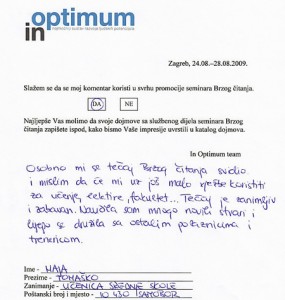 in optimum
Zagreb, 24.08.-28.08.2009.
Slažem se da se moj komentar koristi u svrhu promocije seminara Brzog čitanja.
DA NE
Najljepše Vas molimo da svoje dojmove sa službenog dijela seminara Brzog
čitanja zapišete ispod, kako bismo Vaše impresije uvrstili u katalog dojmova.
In Optimum team
Osobno mi se tečaj Brzog čitanja svidio
i mislim da će mi uz još malo vježbe koristiti
za učenje, lektire, fakultet... Tečaj je zanimljiv
i zabavan. Naučila sam mnogo novih stvari i
lijepo se družila sa ostalim polaznicima i
trenericom.
Ime - MAJA
Prezime - TOMAŠKO
Zanimanje - UČENICA SREDNJE ŠKOLE
Poštanski broj i mjesto - 10 430 SAMOBOR